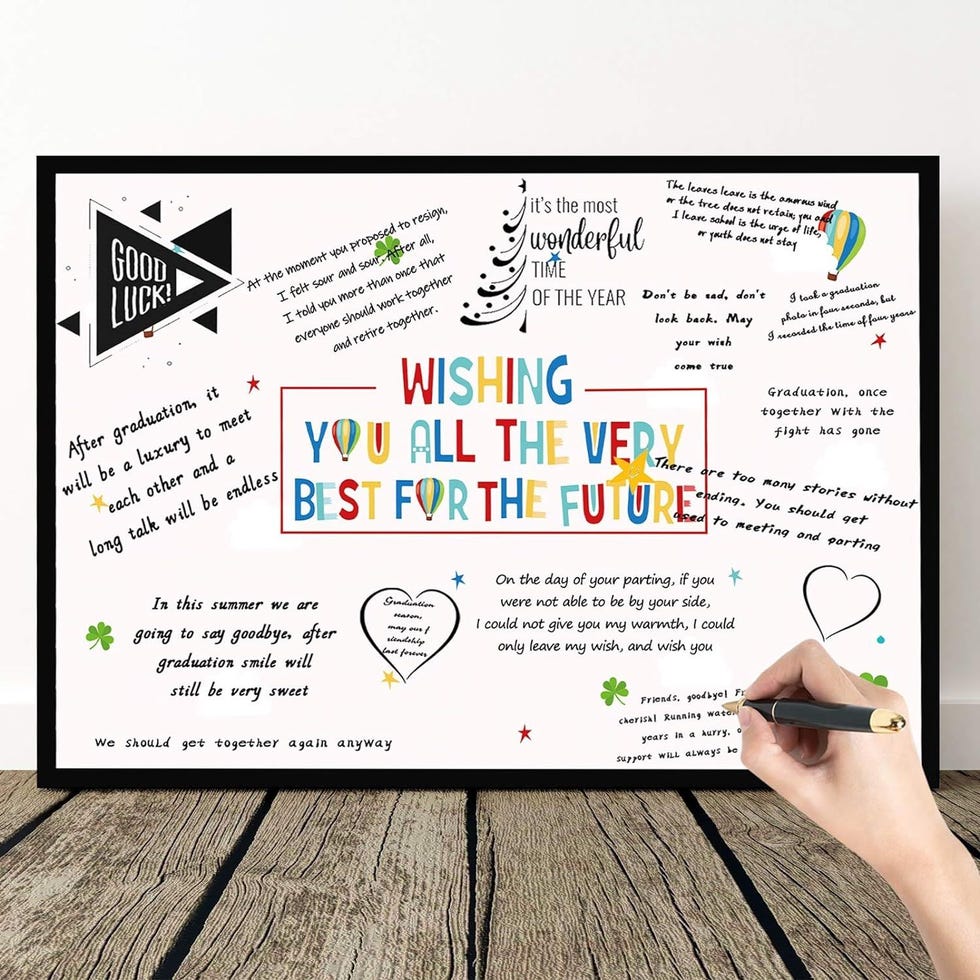 GOOD
LUCK!
At the moment you proposed to resign,
I felt sour and sour. After all,
I told you more than once that
everyone should work together
and retire together.
it's the most
wonderful
TIME
OF THE YEAR
The leaves leave is the amorous wind
or the tree does not retain; you and
I leave school is the urge of life,
or youth does not stay
Don't be sad, don't
look back. May
your wish
come true
I took a graduation
photo in four seconds, but
I recorded the time of four years
Graduation, once
together with the
fight has gone
After graduation, it
will be a luxury to meet
each other and a
long talk will be endless
WISHING
YOU ALL THE VERY
BEST FOR THE FUTURE
There are too many stories without
ending. You should get
used to meeting and parting
In this summer we are
going to say goodbye, after
graduation smile will
still be very sweet
Graduation
season,
may our f
riendship
last forever
On the day of your parting, if you
were not able to be by your side,
I could not give you my warmth, I could
only leave my wish, and wish you
Friends, goodbye! Fr
cherish! Running wate
years in a hurry, o
support will always be
We should get together again anyway